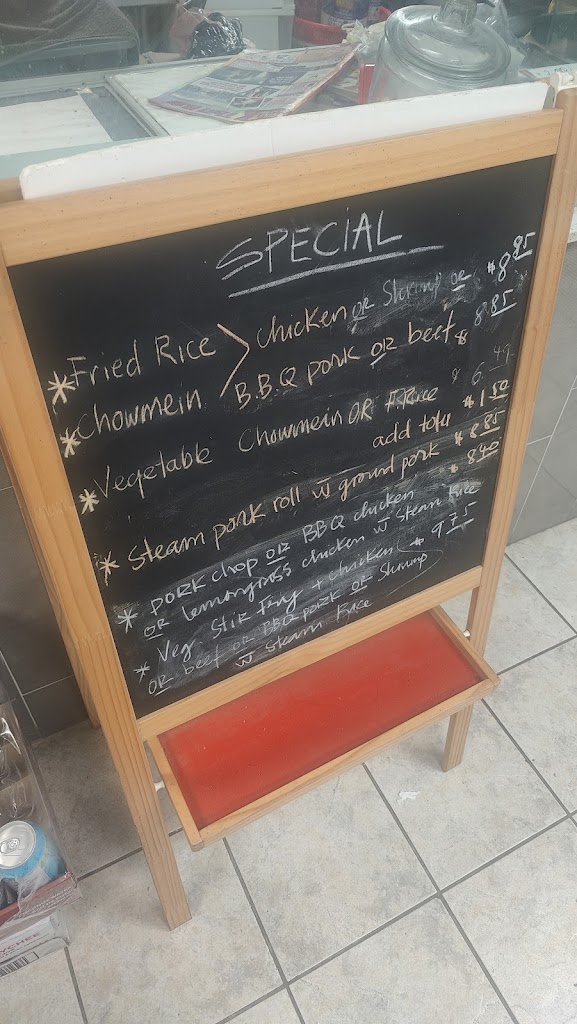 SPECIAL
* Fried Rice > chicken OR Shrimp OR $8.85
* Chowmein B.B.Q pork OR beef $8.85
* Vegetable Chowmein OR F.Rice $6.49
add tofu $1.50
* Steam pork roll w ground pork $8.85
* PORK CHOP OR BBQ chicken $8.40
OR lemongrass chicken w steam rice
* Veg Stir Fry + chicken $9.75
OR beef OR BBQ pork OR shrimp
w steam rice